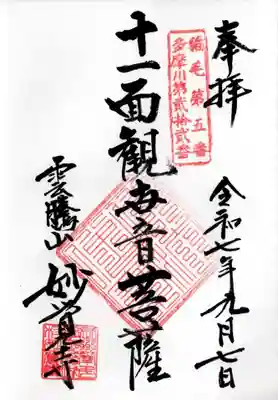 奉拝
令和七年九月七日
稲毛第五番
多摩川第貳拾貳番
十一面観世音菩薩
雲騰山 妙覚寺